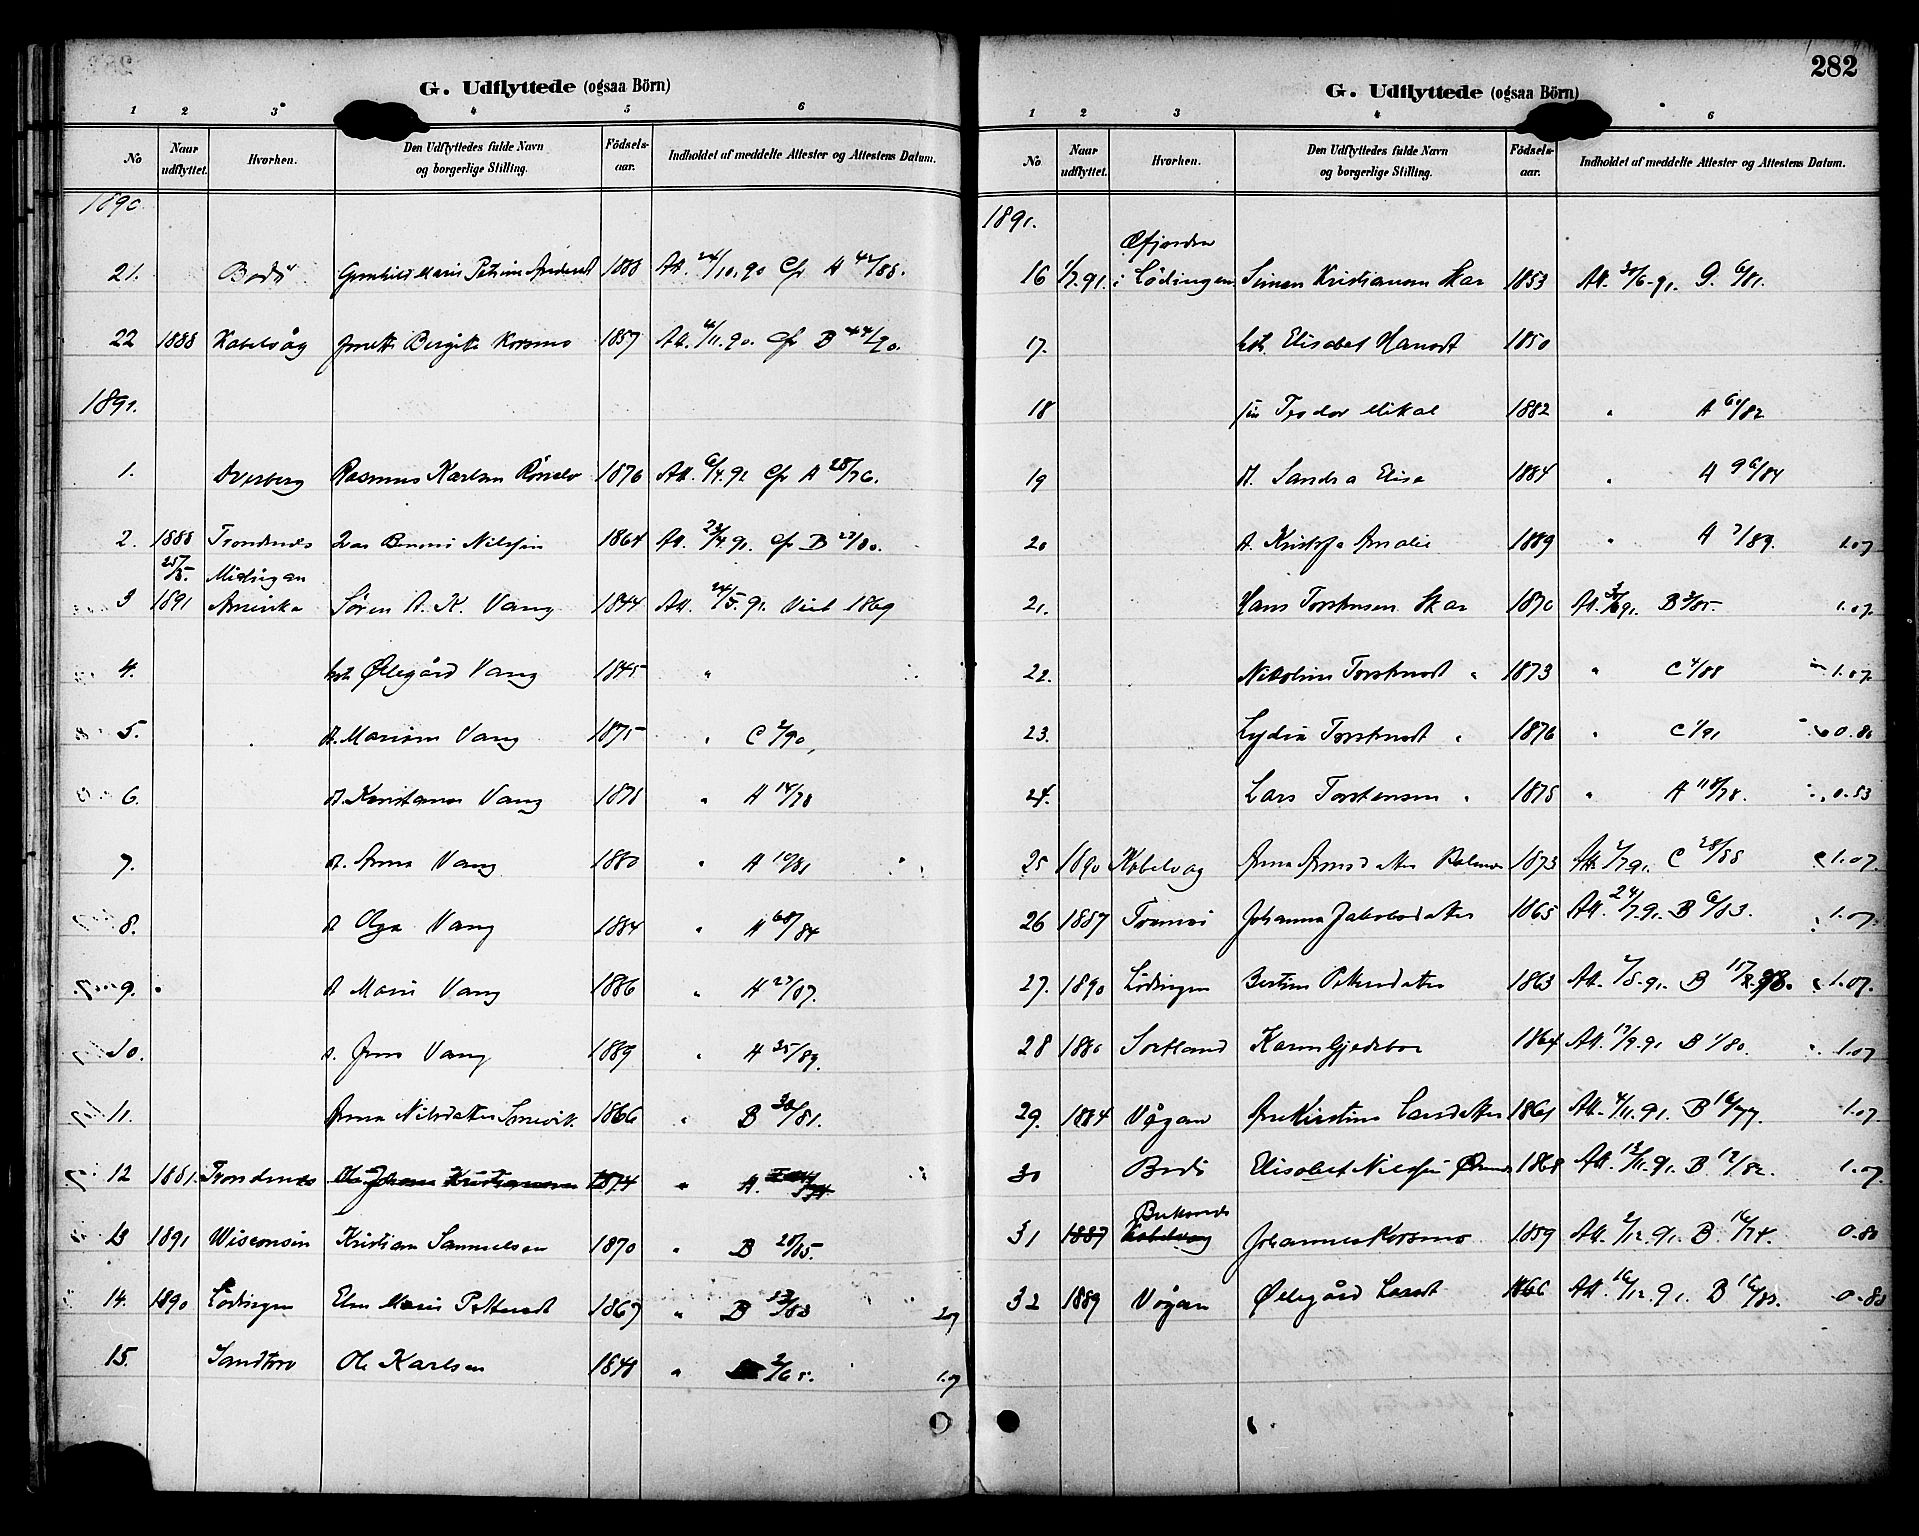 G. Udflyttede (ogsaa Börn)
1 2 3 4 5 6
No Naar udflyttet. Hvorhen. Den Udflyttedes fulde Navn og borgerlige Stilling. Födsels-aar. Indholdet af meddelte Attester og Attestens Datum.
1890.
21. Bodö Marie Petrine 1888 Att. 24/10.90 Cfr A 42/88.
22 1888 Kabelvåg Bergitte Korsmo 1857 Att. 4/11.90. Cfr B 44/90.
1891.
1. Rasmus Karlsen 1876 Att. 6/4.91 Cfr A 28/76.
2. 1888 Trondenes Nilssen 1864 Att. 23/4.91. Cfr B 23/80.
25/5. Michigan
3 1891 Amerika Sören A. K. Vang 1844 Att. 24/5.91. Viet 1869
4. hst. Ölegård Vang 1845 "
5. d. Vang 1875 " C 2/90,
6. d. Konstanse Vang 1878 " A 14/78
7. d. Anna Vang 1880 " A 10/81
8. d. Olga Vang 1884 " A 68/84
9. d. Marie Vang 1886 " A 27/87.
10. d. Vang 1889 " A 35/89.
11. Anna Nilsdatter 1866 " B 30/81.
12 1881. Trondenes Ole Johan Kristiansen 1874 " A.
13 1891 Wisconsin Kristian Samuelsen 1870 " B 20/85.
14. 1890 Lödingen Marie 1867 " B 13/83
15. Sandtorv Ole Karlsen 1848 " 2/65. 1.07
282
G. Udflyttede (ogsaa Börn)
1 2 3 4 6
No Naar udflyttet. Hvorhen. Den Udflyttedes fulde Navn og borgerlige Stilling. Födsels-aar. Indholdet af meddelte Attester og Attestens Datum.
1891.
Öfjorden
16 1/7.91. i Lödingen Simen Kristiansen Skar 1853 Att. 30/6.91. G. 6/81.
17. hst. Elisabet Hansdt 1850
18 Teodor Mikal 1882 " A 60/82
19 d. Sandra Elise 1884 " A 96/84
20 d. Amalie 1889 " A 7/89. 1.07
21. Hans Torstensen Skar 1870 Att. B 3/85. 1.07.
22. Nikoline Torstensdt " 1873 " C 4/88 1.07.
23. Lydia Torstensdt " 1876 " C 1/91 0.80
24. Lars Torstensen " 1878 " A 118/78. 0.53
25 1890 Kabelvag Anna 1873 Att. 2/7.91. C 28/88 1.07.
26 1887 Tromsö Johanna Jakobsdatter 1865 Att. 24/7.91. B 6/83. 1.07.
27. 1890 Lödingen Petersdatter 1863 Att. B 1.07.
28 1880 Sortland Karen 1864 Att. 17/9.91 B 1/80. 1.07
29. 1884 Vågan Larsdatter 1861 Att. 4/11.91. B 16/77. 1.07
30 Bodö Elisabet Nilssen 1868 Att. 12/11.91. B. 12/82. 1.07
31 1887 Kabelvag Johannes Korsmo 1859 Att. 2/12.91. B. 16/74. 0.80
32 1889 Vågan Ölegård Larsdt 1866 Att. 16/12.91. B 16/83. 0.80